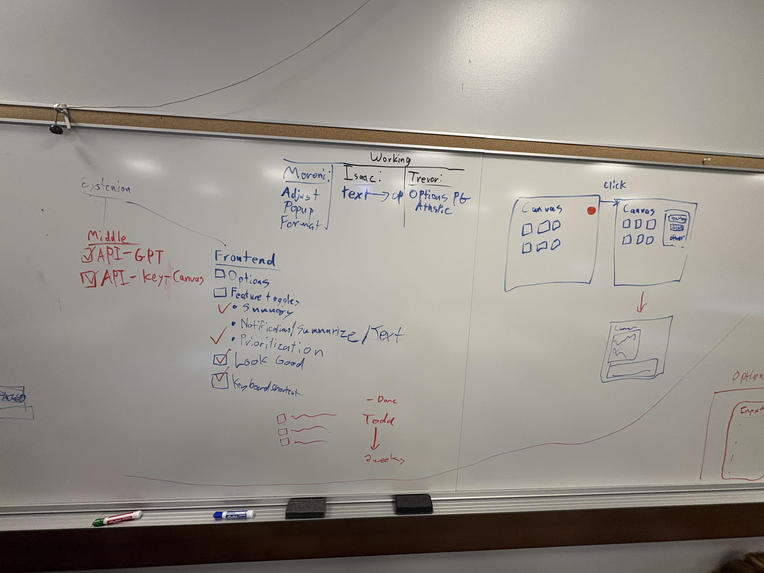 Working
Moroni:
Adjust
Popup
Format
Isaac:
text → op
Trevor:
Options PG
Extension
Middle
API-GPT
API-Key-Canvas
Frontend
Options
Feature toggles
• Summary
• Notification/Summarize/Text
• Prioritization
Look Good
Keyboard shortcut
click
Canvas
Canvas
- Done
Todd
2 weeks